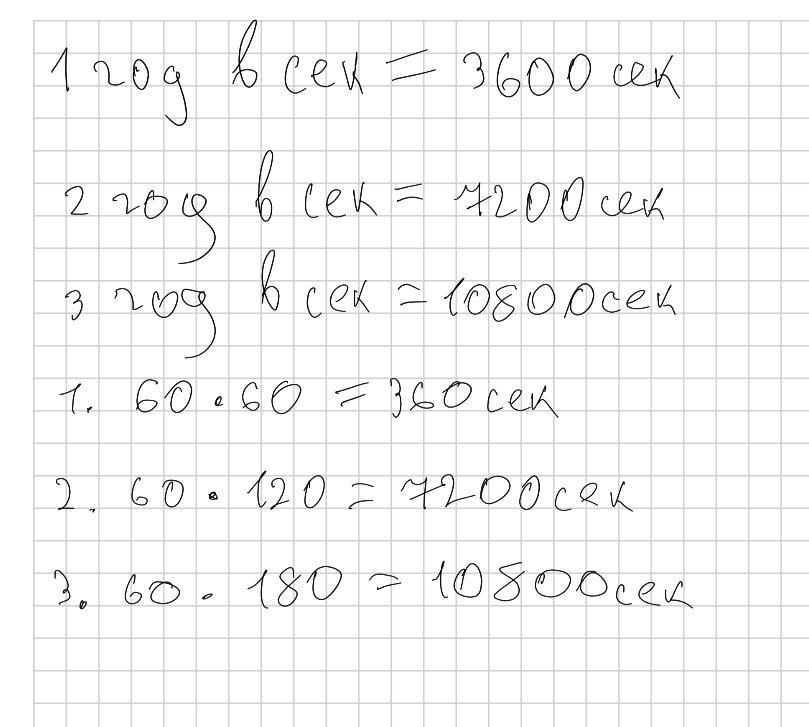 1 год в сек = 3600 сек
2 год в сек = 7200 сек
3 год в сек = 10800 сек
1. 60 · 60 = 360 сек
2. 60 · 120 = 7200 сек
3. 60 · 180 = 10800 сек